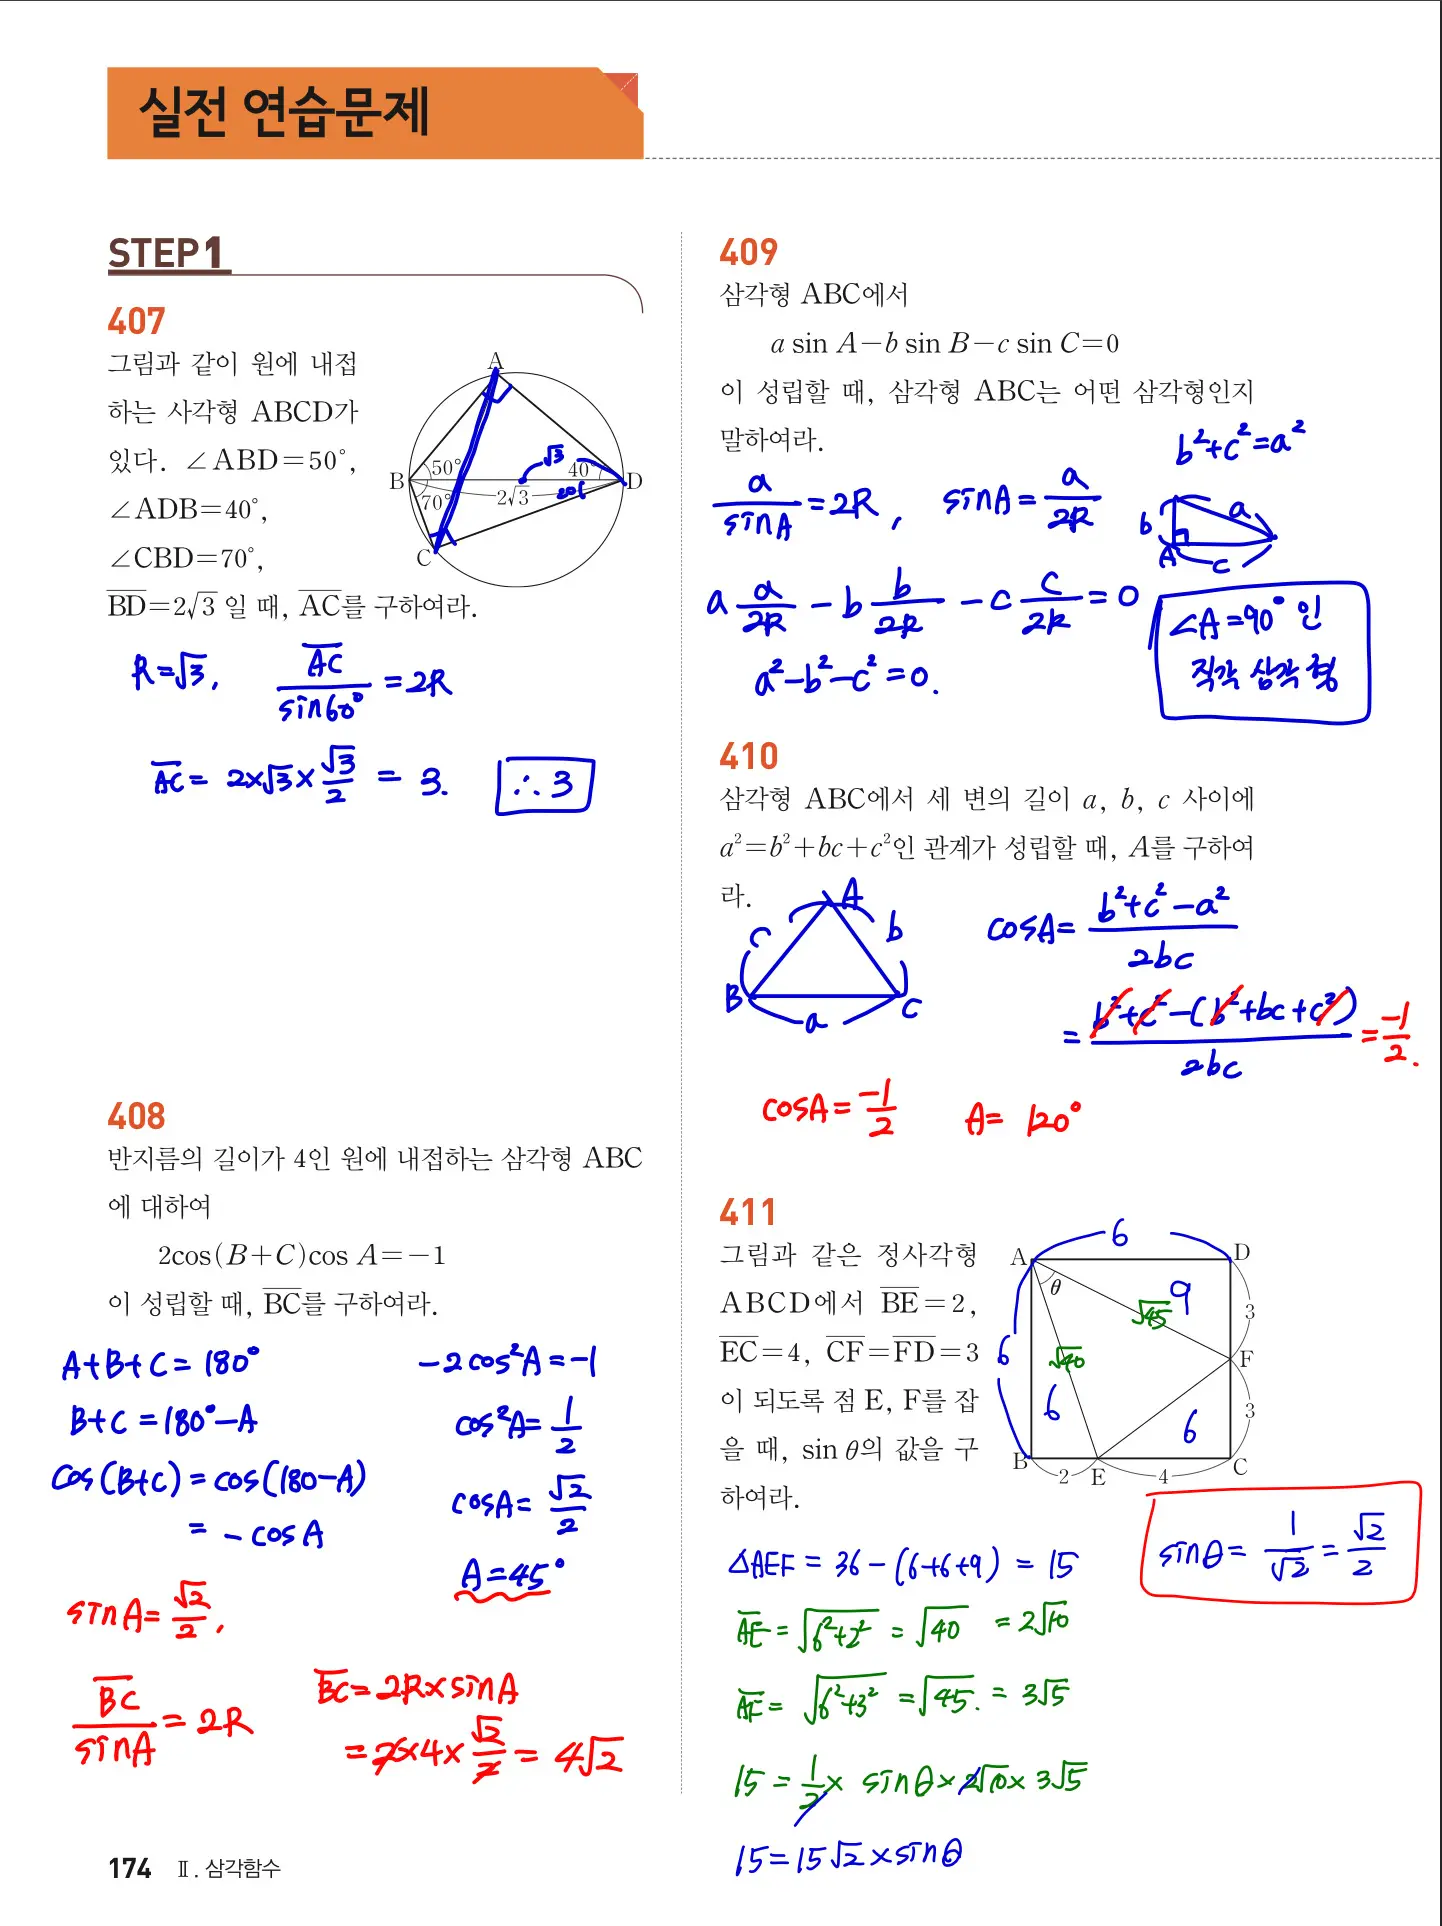 실전 연습문제
STEP 1
407
그림과 같이 원에 내접
하는 사각형 ABCD가
있다. ∠ABD=50°,
∠ADB=40°,
∠CBD=70°,
BD=2√3 일 때, AC를 구하여라.
A
B
C
D
50°
70°
40°
2√3
√3
20
R=√3, AC/sin60° = 2R
AC = 2×√3×√3/2 = 3. ∴ 3
408
반지름의 길이가 4인 원에 내접하는 삼각형 ABC
에 대하여
2cos(B+C)cos A=-1
이 성립할 때, BC를 구하여라.
A+B+C=180°
B+C=180°-A
cos(B+C)=cos(180-A)
= -cosA
sinA=√2/2,
BC/sinA=2R
-2cos²A=-1
cos²A=1/2
cosA=√2/2
A=45°
BC=2R×sinA
=2×4×√2/2=4√2
409
삼각형 ABC에서
a sin A-b sin B-c sin C=0
이 성립할 때, 삼각형 ABC는 어떤 삼각형인지
말하여라.
b²+c²=a²
a/sinA=2R, sinA=a/2R
b
a
A
c
a a/2R - b b/2R - c c/2R = 0
a²-b²-c²=0.
∠A=90° 인
직각 삼각형
410
삼각형 ABC에서 세 변의 길이 a, b, c 사이에
a²=b²+bc+c²인 관계가 성립할 때, A를 구하여
라.
A
c
b
B
a
C
cosA=(b²+c²-a²)/2bc
=(b²+c²-(b²+bc+c²))/2bc=-1/2.
cosA=-1/2 A=120°
411
그림과 같은 정사각형
ABCD에서 BE=2,
EC=4, CF=FD=3
이 되도록 점 E, F를 잡
을 때, sin θ의 값을 구
하여라.
6
A
D
θ
9
3
√45
6
√40
F
6
6
3
B
2
E
4
C
△AEF = 36-(6+6+9) = 15
AE=√(6²+2²) = √40 = 2√10
AF=√(6²+3²) = √45. = 3√5
15=1/2× sinθ×2√10×3√5
15=15√2×sinθ
sinθ=1/√2=√2/2
174 Ⅱ. 삼각함수